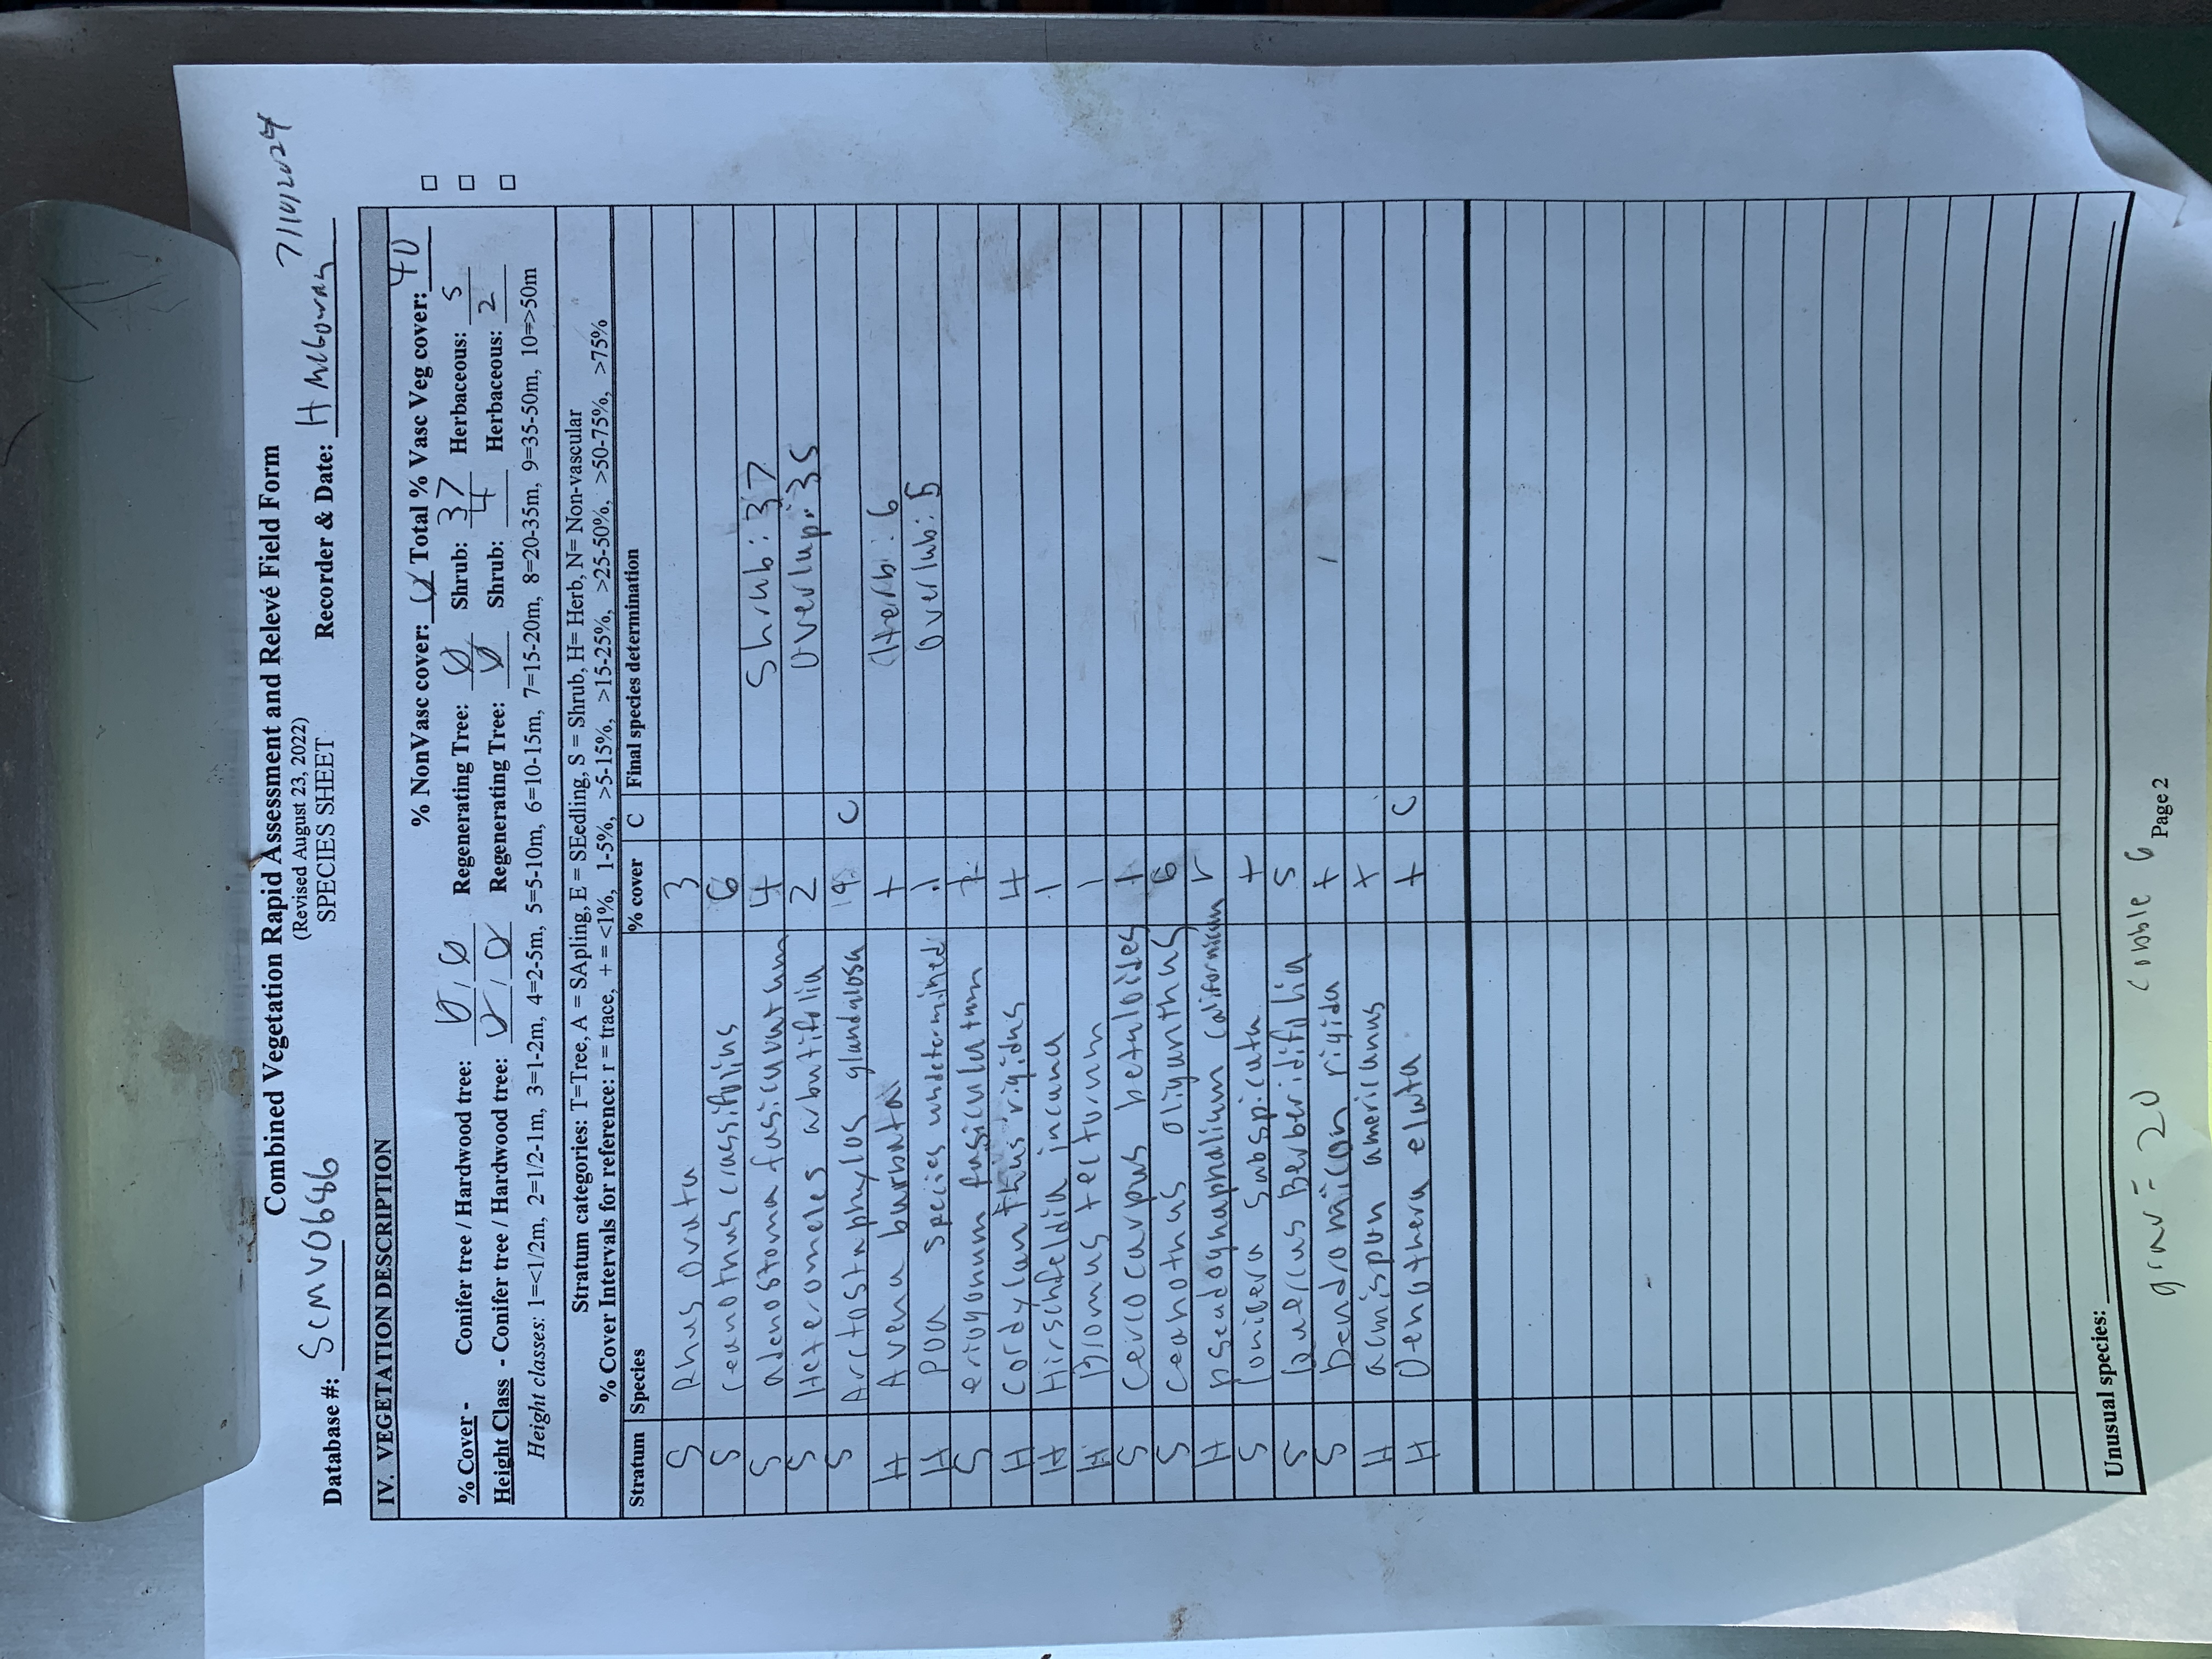 Combined Vegetation Rapid Assessment and Relevé Field Form
(Revised August 23, 2022)
SPECIES SHEET
7/10/2024
Database #: SCMV0686 Recorder & Date: H
IV. VEGETATION DESCRIPTION
% NonVasc cover: 0 Total % Vasc Veg cover: 40
% Cover - Conifer tree / Hardwood tree: 0 / 0 Regenerating Tree: 0 Shrub: 37 Herbaceous: 5
Height Class - Conifer tree / Hardwood tree: 0 / 0 Regenerating Tree: 0 Shrub: 4 Herbaceous: 2
Height classes: 1=<1/2m, 2=1/2-1m, 3=1-2m, 4=2-5m, 5=5-10m, 6=10-15m, 7=15-20m, 8=20-35m, 9=35-50m, 10=>50m
Stratum categories: T=Tree, A = SApling, E = SEedling, S = Shrub, H= Herb, N= Non-vascular
% Cover Intervals for reference: r = trace, + = <1%, 1-5%, >5-15%, >15-25%, >25-50%, >50-75%, >75%
Stratum Species % cover C Final species determination
S Rhus ovata 3
S ceanothus crassifolius 6
S adenostoma fasiculatum 4 Shrub: 37
S Heteromeles arbutifolia 2 Overlap: 35
S Arctostaphylos glandulosa 19 C
H Avena barbata + Herb: 6
H POA species undetermined .1 Overlab: 5
S eriogonum fasiculatum
H cordylanthus rigidus 4
H Hirschfeldia incana 1
H Bromus tectorum 1
S cercocarpus betuloides +
S ceanothus oliganthus 6
H pseudognaphalium californicum r
S Lonicera subspicata +
S Quercus Berberidifolia 5
S Dendromicon rigida +
H acmispon americanus +
H Oenothera elata + C
Unusual species:
grav = 20 cobble 6
Page 2